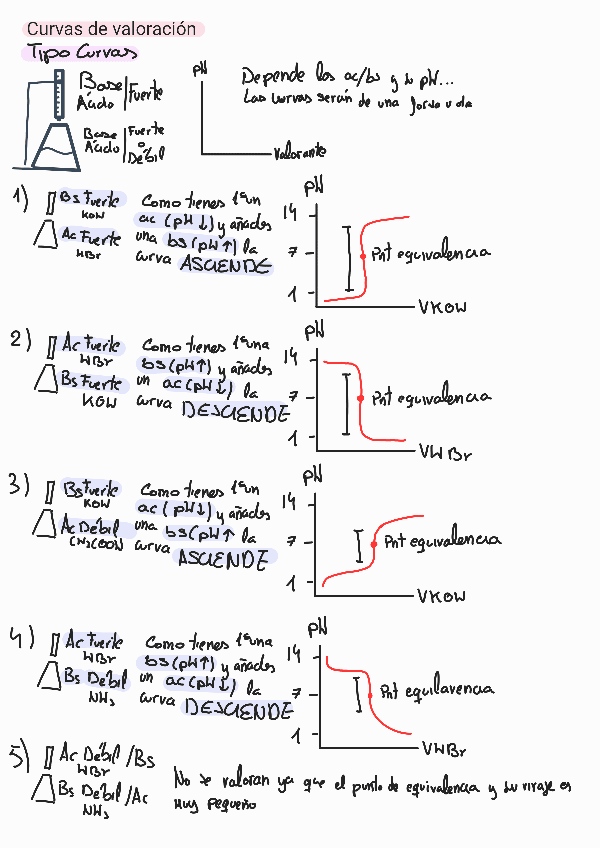 Curvas de valoración
Tipo Curvas
Base
Ácido
Fuerte
Base
Ácido
Fuerte
o
Débil
pH
valorante
Depende los ac/bs y su pH...
Las curvas serán de una forma u da
1)
Bs Fuerte
KOH
Ac Fuerte
HBr
Como tienes 1º un
ac (pH↓) y añades
una bs (pH↑) la
curva ASCIENDE
pH
14
7
1
Pnt equivalencia
VKOH
2)
Ac Fuerte
HBr
Bs Fuerte
KOH
Como tienes 1º una
bs (pH↑) y añades
un ac (pH↓) la
curva DESCIENDE
pH
14
7
1
Pnt equivalencia
VHBr
3)
Bs Fuerte
KOH
Ac Débil
CH3COOH
Como tienes 1º un
ac (pH↓) y añades
una bs (pH↑ la
curva ASCIENDE
pH
14
7
1
Pnt equivalencia
VKOH
4)
Ac Fuerte
HBr
Bs Débil
NH3
Como tienes 1º una
bs (pH↑) y añades
un ac (pH↓) la
curva DESCIENDE
pH
14
7
1
Pnt equilavencia
VHBr
5)
Ac Débil /Bs
HBr
Bs Débil /Ac
NH3
No se valoran ya que el punto de equivalencia y su viraje es
muy pequeño